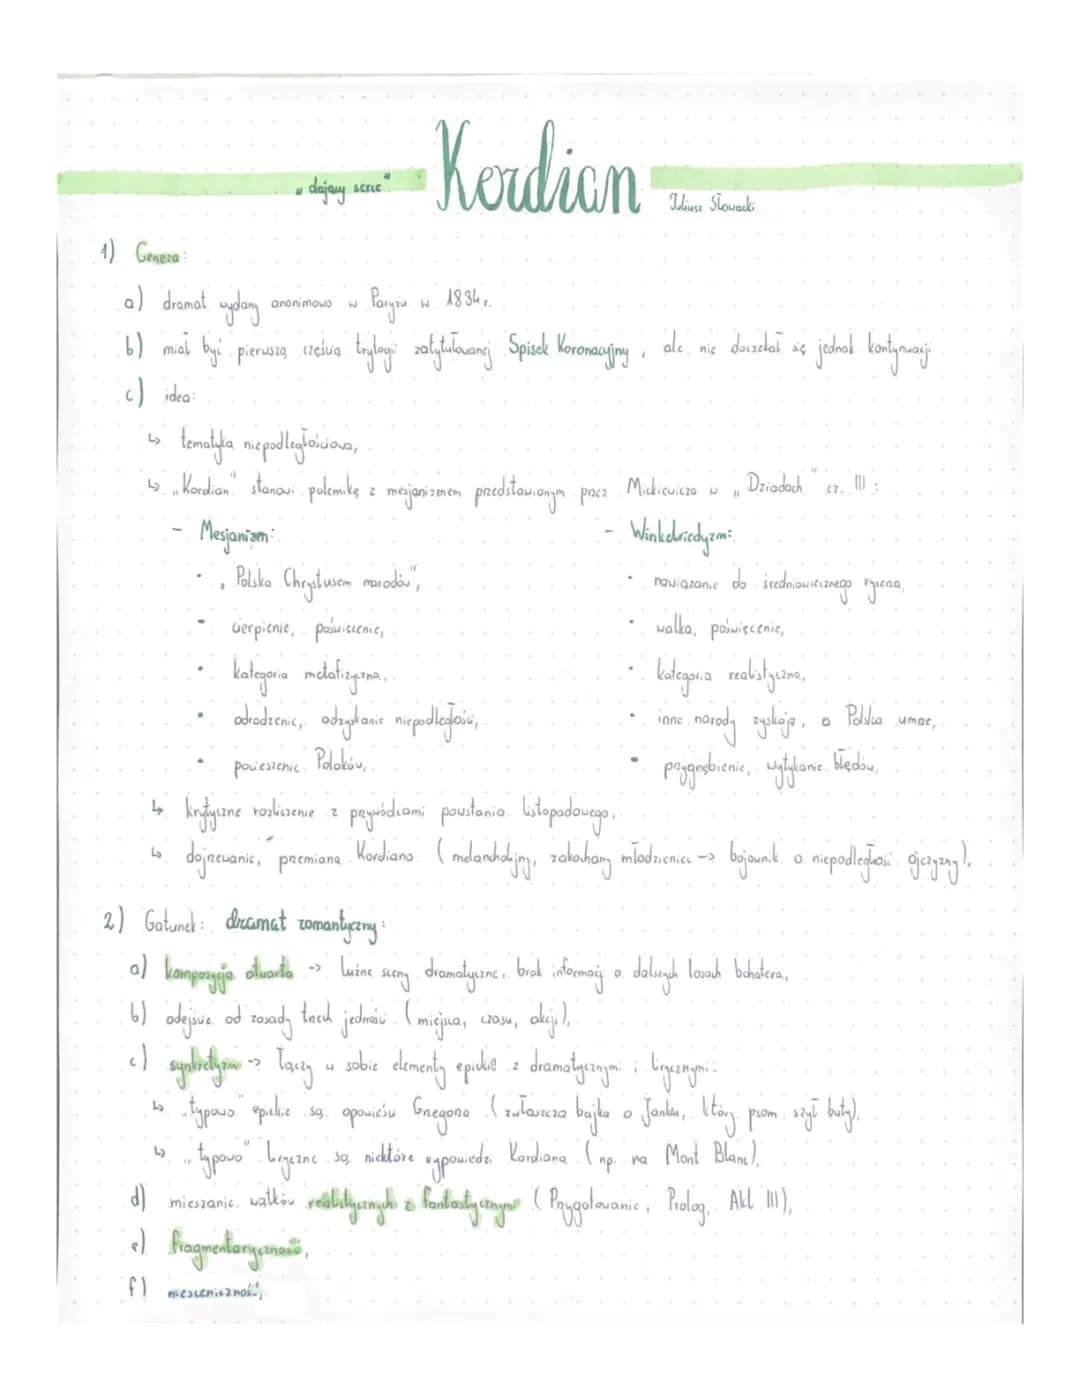 "dający serce" Kordian Juliusz Słowacki
1) Geneza:
a) dramat wydany anonimowo w Paryżu w 1834r.
b) miał być pierwszą częścią trylogii zatytułowanej Spisek Koronacyjny, ale nie doczekał się jednak kontynuacji
c) idea:
↳ tematyka niepodległościowa,
↳ „Kordian" stanowi polemikę z mesjanizmem przedstawionym przez Mickiewicza w „Dziadach" cz. III:
- Mesjanizm:
- Winkelriedyzm:
• „Polska Chrystusem narodów",
• nawiązanie do średniowiecznego rycerza,
• cierpienie, poświęcenie,
• walka, poświęcenie,
• kategoria metafizyczna,
• kategoria realistyczna,
• odrodzenie, odzyskanie niepodległości,
• inne narody zyskają, a Polska umrze,
• pocieszenie Polaków,
• przygnębienie, wytykanie błędów,
↳ krytyczne rozliczenie z przywódcami powstania listopadowego,
↳ dojrzewanie, przemiana Kordiana (melancholijny, zakochany młodzieniec -> bojownik o niepodległość ojczyzny),
2) Gatunek: dramat romantyczny:
a) kompozycja otwarta -> luźne sceny dramatyczne, brak informacji o dalszych losach bohatera,
b) odejście od zasady trzech jedności (miejsca, czasu, akcji),
c) synkretyzm -> łączy w sobie elementy epickie z dramatycznymi i lirycznymi:
↳ „typowo" epickie są opowieści Grzegorza (zwłaszcza bajka o Janku, który psom szył buty),
↳ „typowo" liryczne są niektóre wypowiedzi Kordiana (np. na Mont Blanc),
d) mieszanie wątków realistycznych z fantastycznymi (Przygotowanie, Prolog, Akt III),
e) fragmentaryczność,
f) niesceniczność,